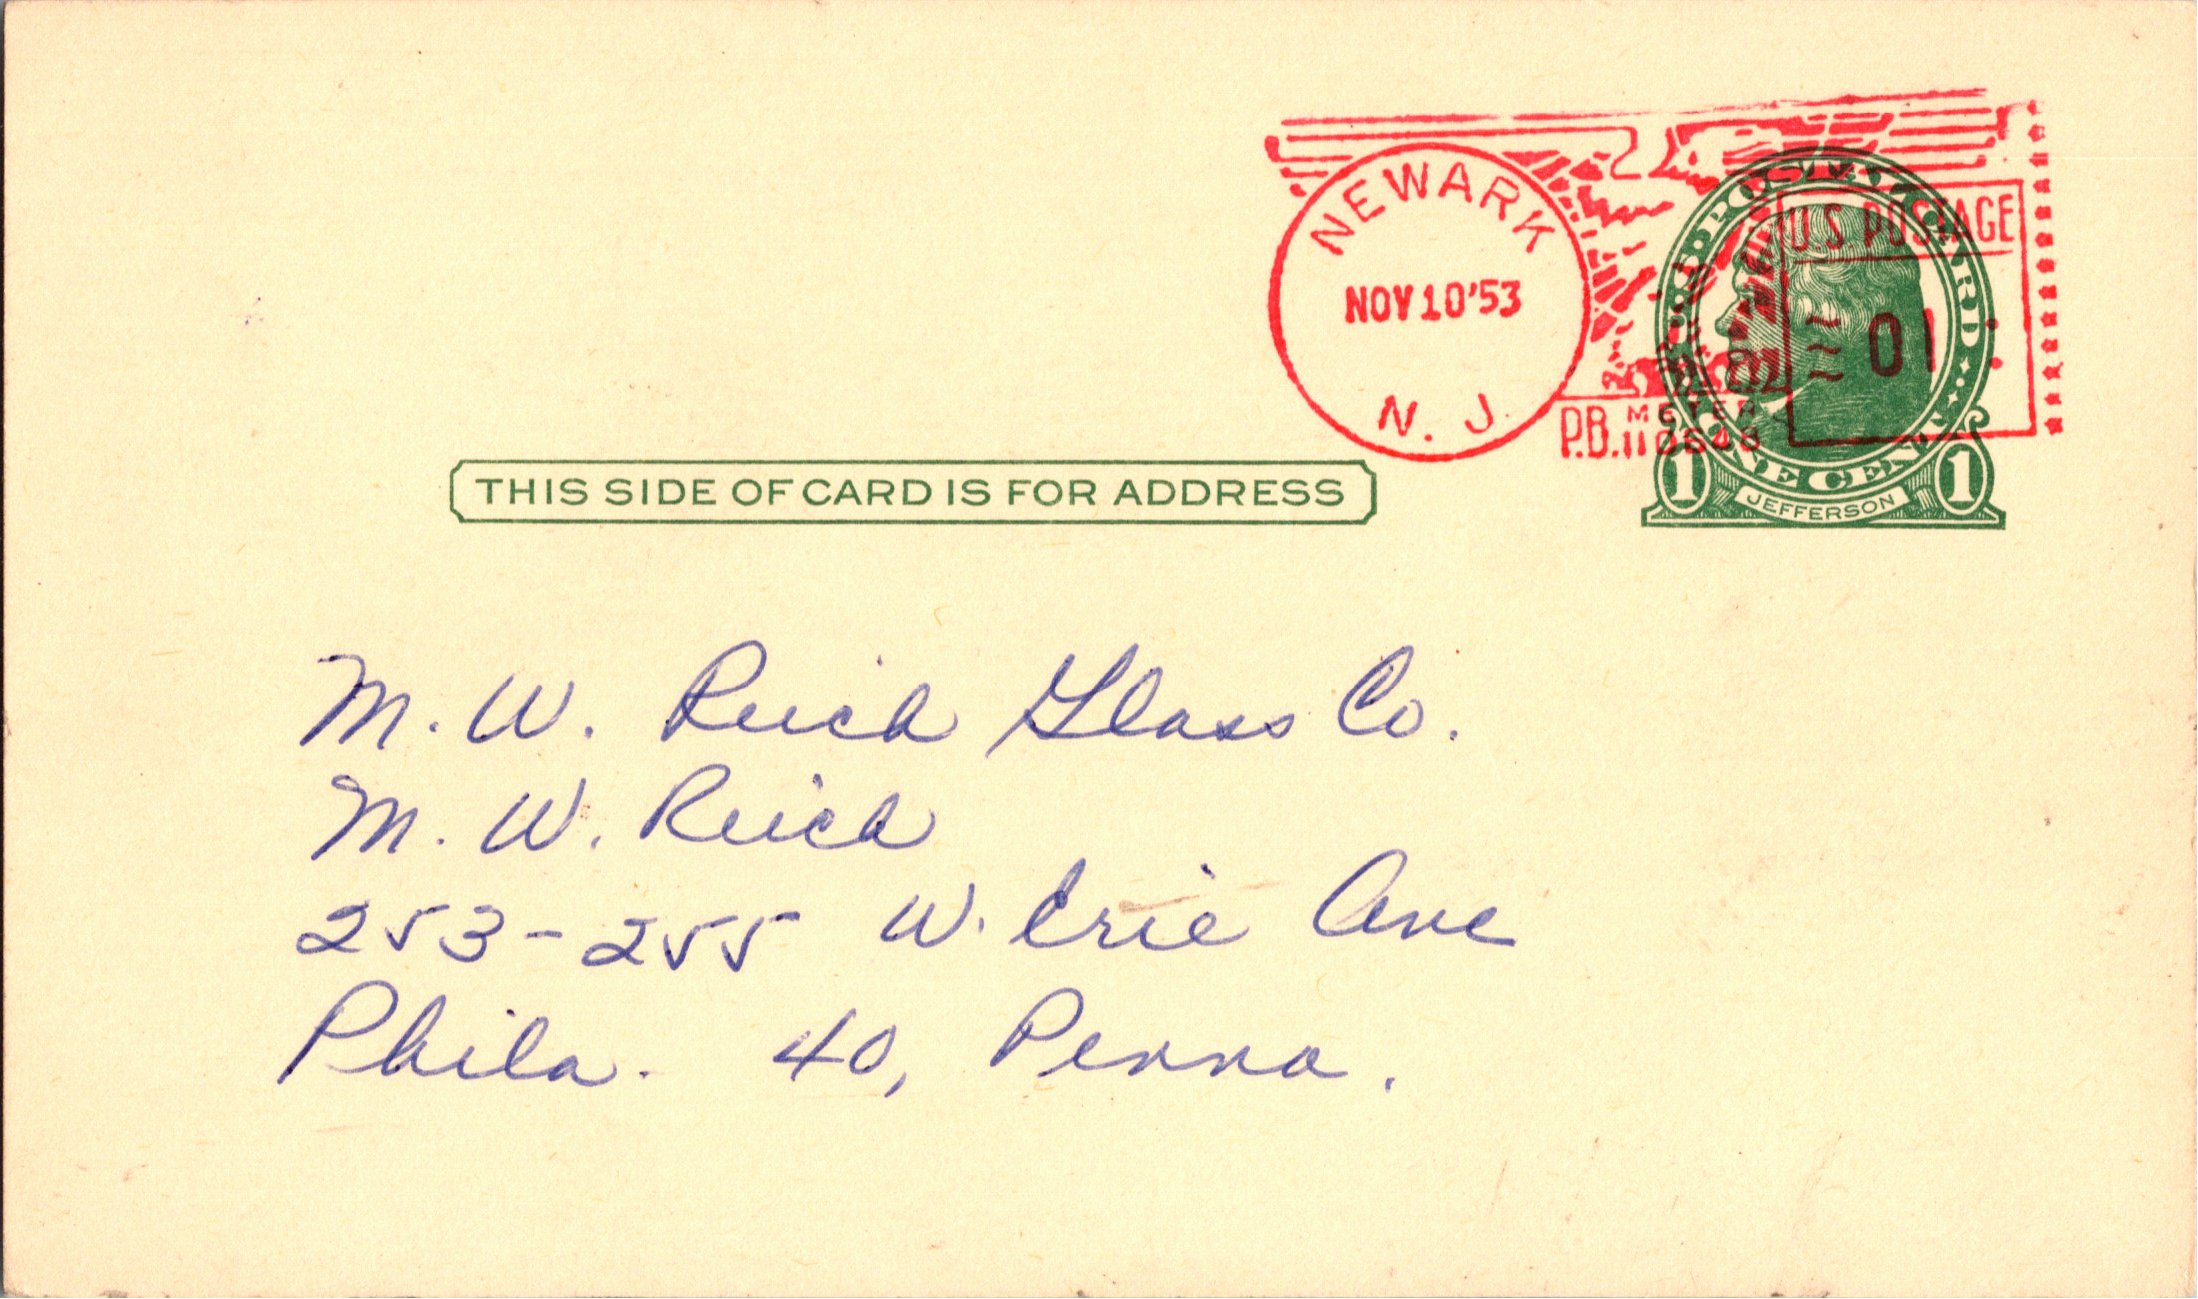 NEWARK
NOV 10 '53
N. J.
P.B. METER
U.S. POSTAGE
01
U.S. POSTAL CARD
ONE CENT
1 JEFFERSON 1
THIS SIDE OF CARD IS FOR ADDRESS
M. W. Reich Glass Co.
M. W. Reich
253-255 W. Erie Ave
Phila. 40, Penna.